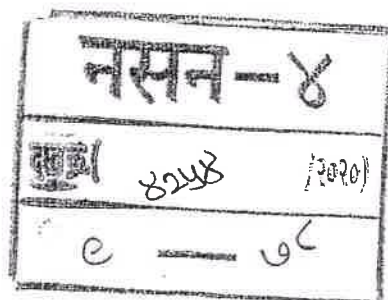 नसन - ४
दस्त क्र. ( ४२५४ /२०२०)
९ — ७८